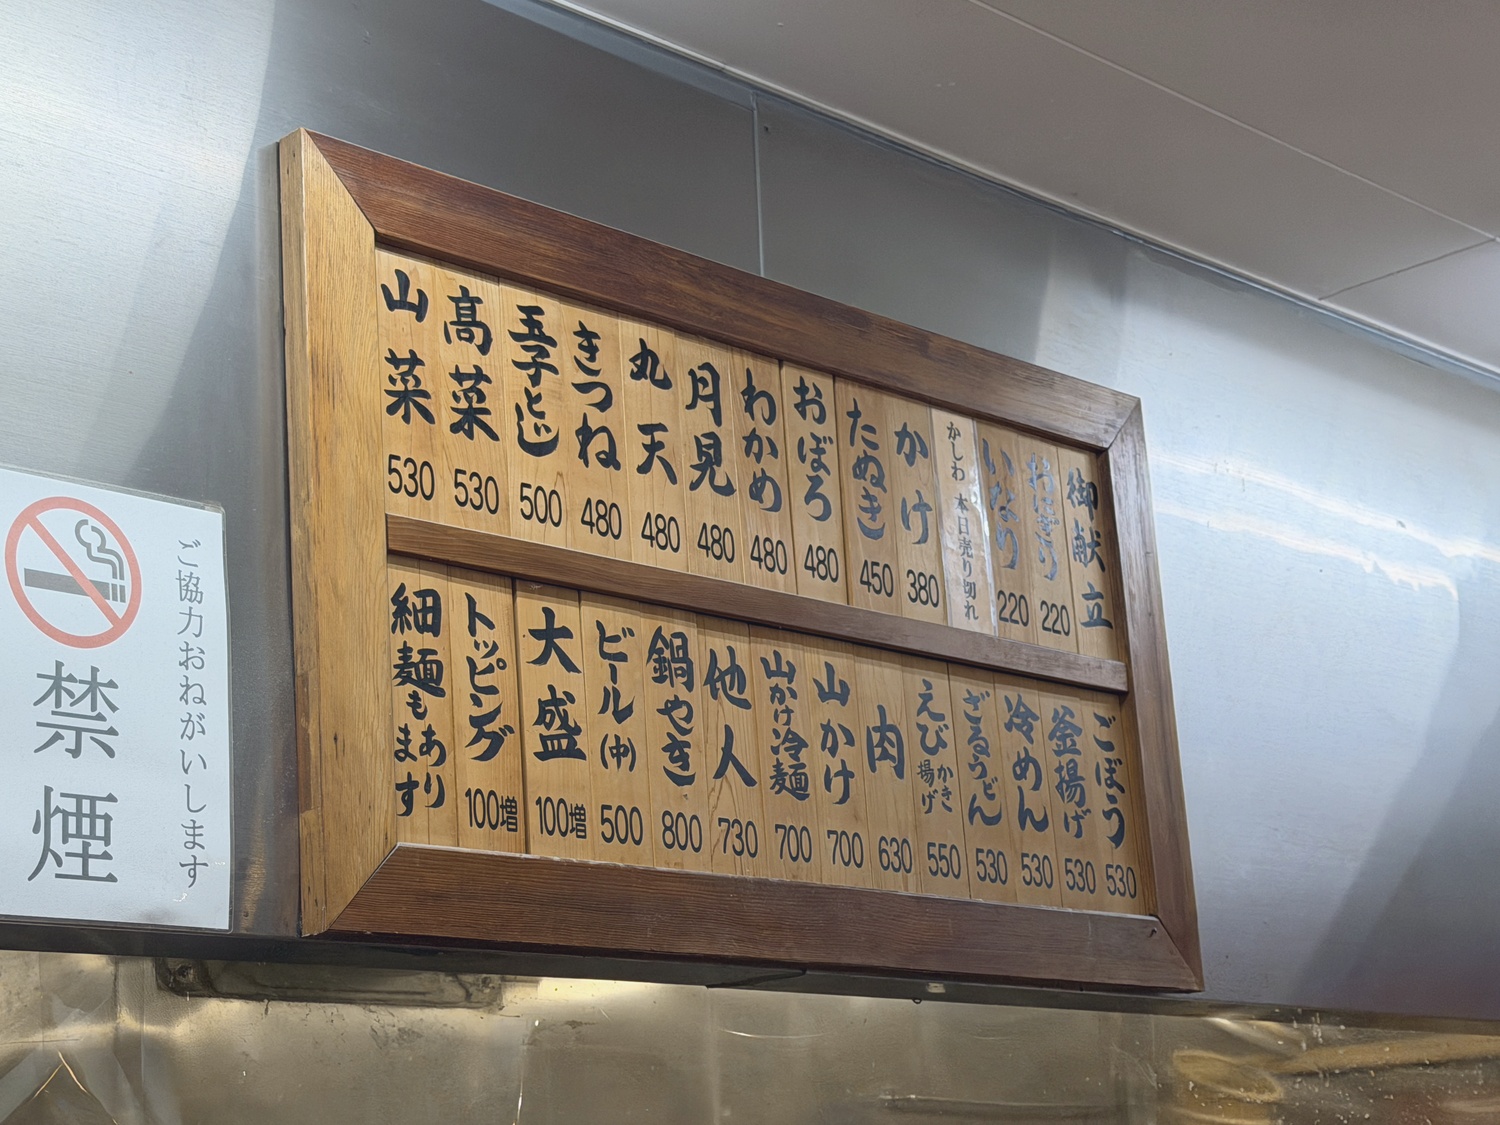 御献立
おにぎり 220
いなり 220
かしわ 本日売り切れ
かけ 380
たぬき 450
おぼろ 480
わかめ 480
月見 480
丸天 480
きつね 480
玉子とじ 500
高菜 530
山菜 530
ごぼう 530
釜揚げ 530
冷めん 530
ざるうどん 530
えびかき揚げ 550
肉 630
山かけ 700
山かけ冷麺 700
他人 730
鍋やき 800
ビール(中) 500
大盛 100増
トッピング 100増
細麺もあります
ご協力おねがいします
禁煙